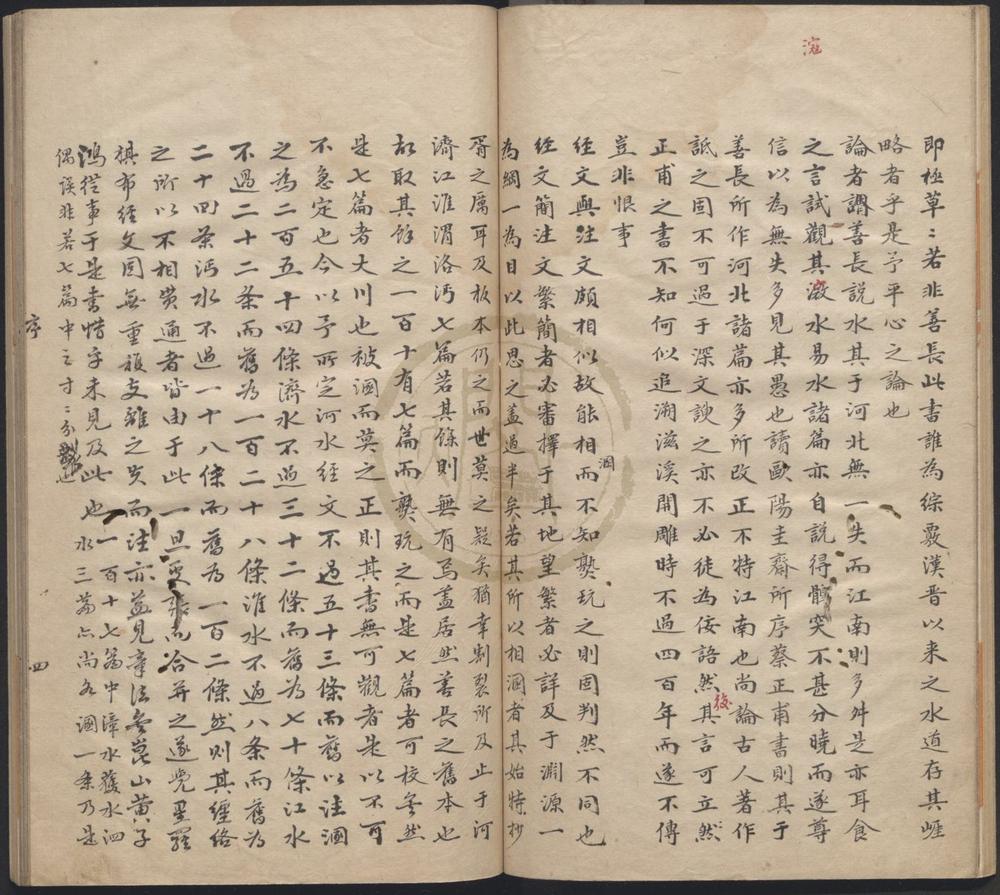 即極草〻若非善長此書誰為綜覈漢晉以来之水道存其崕
略者乎是予平心之論也
論者謂善長説水其于河北無一失而江南則多舛是亦耳食
之言試觀其㴲水易水諸篇亦自説得骩突不甚分曉而遂尊
滱
信以為無失多見其愚也讀歐陽圭齋所序蔡正甫書則其于
善長所作河北諸篇亦多所改正不特江南也尚論古人著作
詆之固不可過于深文諛之亦不必徒為佞語然後其言可立然
正甫之書不知何似追溯滋溪開雕時不過四百年而遂不傳
豈非恨事
經文與注文頗相似故能相溷而不知熟玩之則固判然不同也
經文簡注文繁簡者必審擇于其地望繁者必詳及于淵源一
為綱一為目以此思之盖過半矣若其所以相溷者其始特抄
胥之厲耳及板本仍之而世莫之疑矣猶幸割裂所及止于河
濟江淮渭洛沔七篇若其餘則無有焉盖居然善長之舊本也
故取其餘之一百十有七篇而熟玩之而是七篇者可校矣然
是七篇者大川也被溷而莫之正則其書無可觀者是以不可
不急定也今以予所定河水經文不過五十三條而舊以注溷
之為二百五十四條濟水不過三十二條而舊為七十條江水
不過二十二条而舊為一百二十八條淮水不過八条而舊為
二十四条沔水不過一十八條而舊為一百二條然則其經絡
之所以不相貫通者皆由于此一旦更張而合并之遂覺星羅
棋布經文固無重複支離之失而注亦益見章法矣崑山黄子
鴻從事于是書惜乎未見及此也一百十七篇中漳水穫水泗水三篇亦尚各溷一条乃是
偶誤非若七篇中之寸〻分割也
序
四